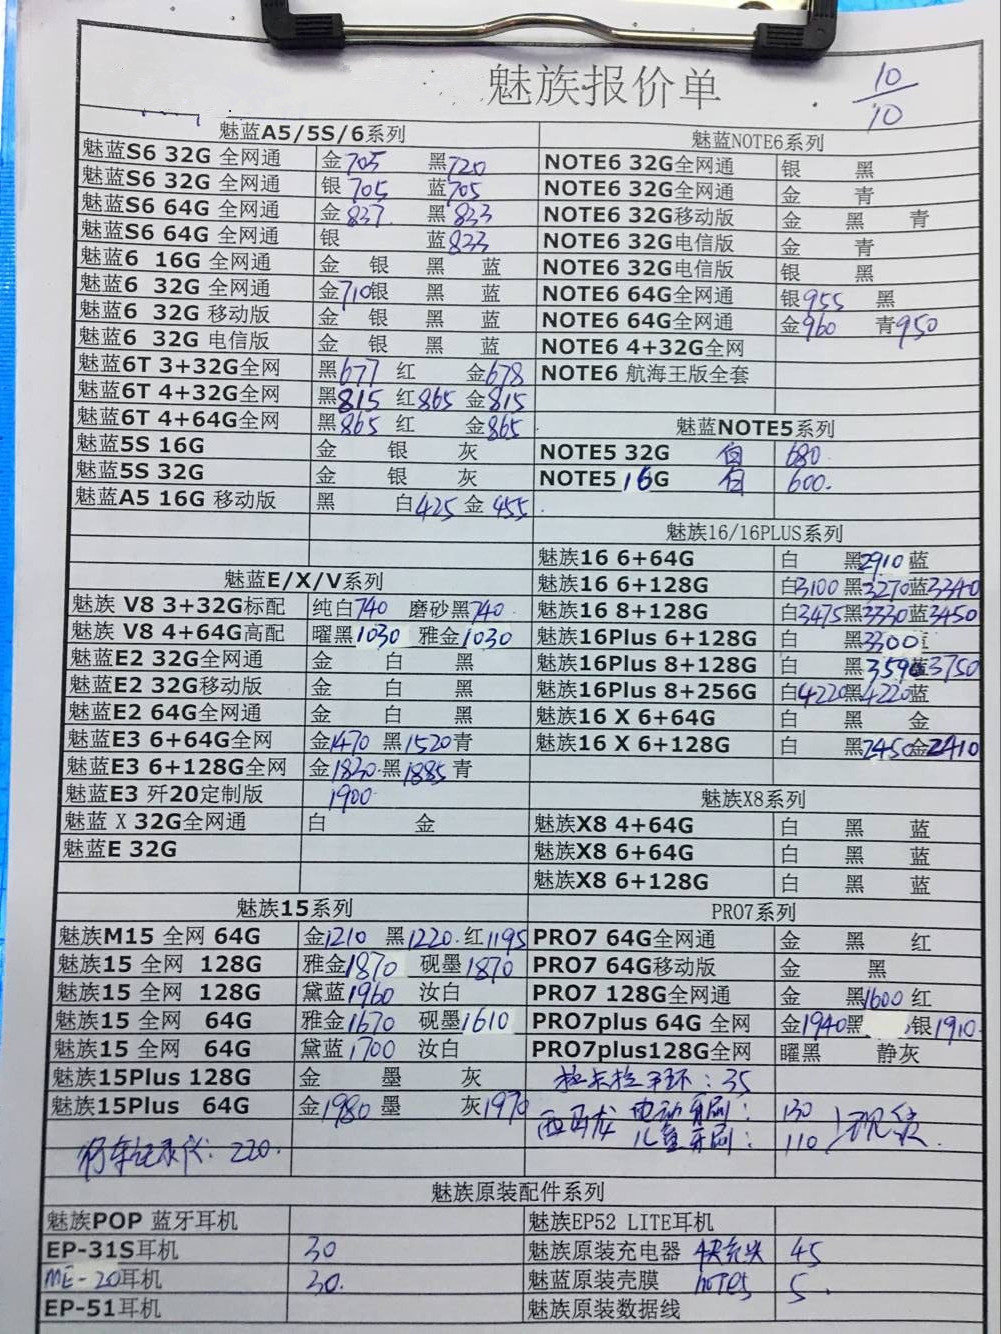 魅族报价单
10/10
魅蓝A5/5S/6系列
魅蓝S6 32G 全网通 金705 黑720
魅蓝S6 32G 全网通 银705 蓝705
魅蓝S6 64G 全网通 金837 黑833
魅蓝S6 64G 全网通 银 蓝833
魅蓝6 16G 全网通 金 银 黑 蓝
魅蓝6 32G 全网通 金710银 黑 蓝
魅蓝6 32G 移动版 金 银 黑 蓝
魅蓝6 32G 电信版 金 银 黑 蓝
魅蓝6T 3+32G全网 黑677 红 金678
魅蓝6T 4+32G全网 黑815 红865 金815
魅蓝6T 4+64G全网 黑865 红 金865
魅蓝5S 16G 金 银 灰
魅蓝5S 32G 金 银 灰
魅蓝A5 16G 移动版 黑 白425 金455
魅蓝E/X/V系列
魅族 V8 3+32G标配 纯白740 磨砂黑740
魅族 V8 4+64G高配 曜黑1030 雅金1030
魅蓝E2 32G全网通 金 白 黑
魅蓝E2 32G移动版 金 白 黑
魅蓝E2 64G全网通 金 白 黑
魅蓝E3 6+64G全网 金1470 黑1520青
魅蓝E3 6+128G全网 金1830 黑1885青
魅蓝E3 歼20定制版 1900
魅蓝 X 32G全网通 白 金
魅蓝E 32G
魅族15系列
魅族M15 全网 64G 金1210 黑1220 红1195
魅族15 全网 128G 雅金1870 砚墨1870
魅族15 全网 128G 黛蓝1960 汝白
魅族15 全网 64G 雅金1670 砚墨1610
魅族15 全网 64G 黛蓝1700 汝白
魅族15Plus 128G 金 墨 灰
魅族15Plus 64G 金1980 墨 灰1970
行车记录仪：220.
魅蓝NOTE6系列
NOTE6 32G全网通 银 黑
NOTE6 32G全网通 金 青
NOTE6 32G移动版 金 黑 青
NOTE6 32G电信版 金 青
NOTE6 32G电信版 银 黑
NOTE6 64G全网通 银955 黑
NOTE6 64G全网通 金960 青950
NOTE6 4+32G全网
NOTE6 航海王版全套
魅蓝NOTE5系列
NOTE5 32G 白 680
NOTE5 16G 白 600.
魅族16/16PLUS系列
魅族16 6+64G 白 黑2910 蓝
魅族16 6+128G 白3100 黑3270蓝3340
魅族16 8+128G 白3475黑3330蓝3450
魅族16Plus 6+128G 白 黑3300
魅族16Plus 8+128G 白 黑3590蓝3750
魅族16Plus 8+256G 白4220黑4220蓝
魅族16 X 6+64G 白 黑 金
魅族16 X 6+128G 白 黑2450金2410
魅族X8系列
魅族X8 4+64G 白 黑 蓝
魅族X8 6+64G 白 黑 蓝
魅族X8 6+128G 白 黑 蓝
PRO7系列
PRO7 64G全网通 金 黑 红
PRO7 64G移动版 金 黑
PRO7 128G全网通 金 黑1600 红
PRO7plus 64G 全网 金1940黑 银1910
PRO7plus128G全网 曜黑 静灰
拉卡拉手环：35
西马龙 电动牙刷：130
儿童牙刷：110
魅族原装配件系列
魅族POP 蓝牙耳机 魅族EP52 LITE耳机
EP-31S耳机 30 魅族原装充电器 快充头 45
ME-20耳机 30. 魅蓝原装壳膜 note5 5.
EP-51耳机 魅族原装数据线